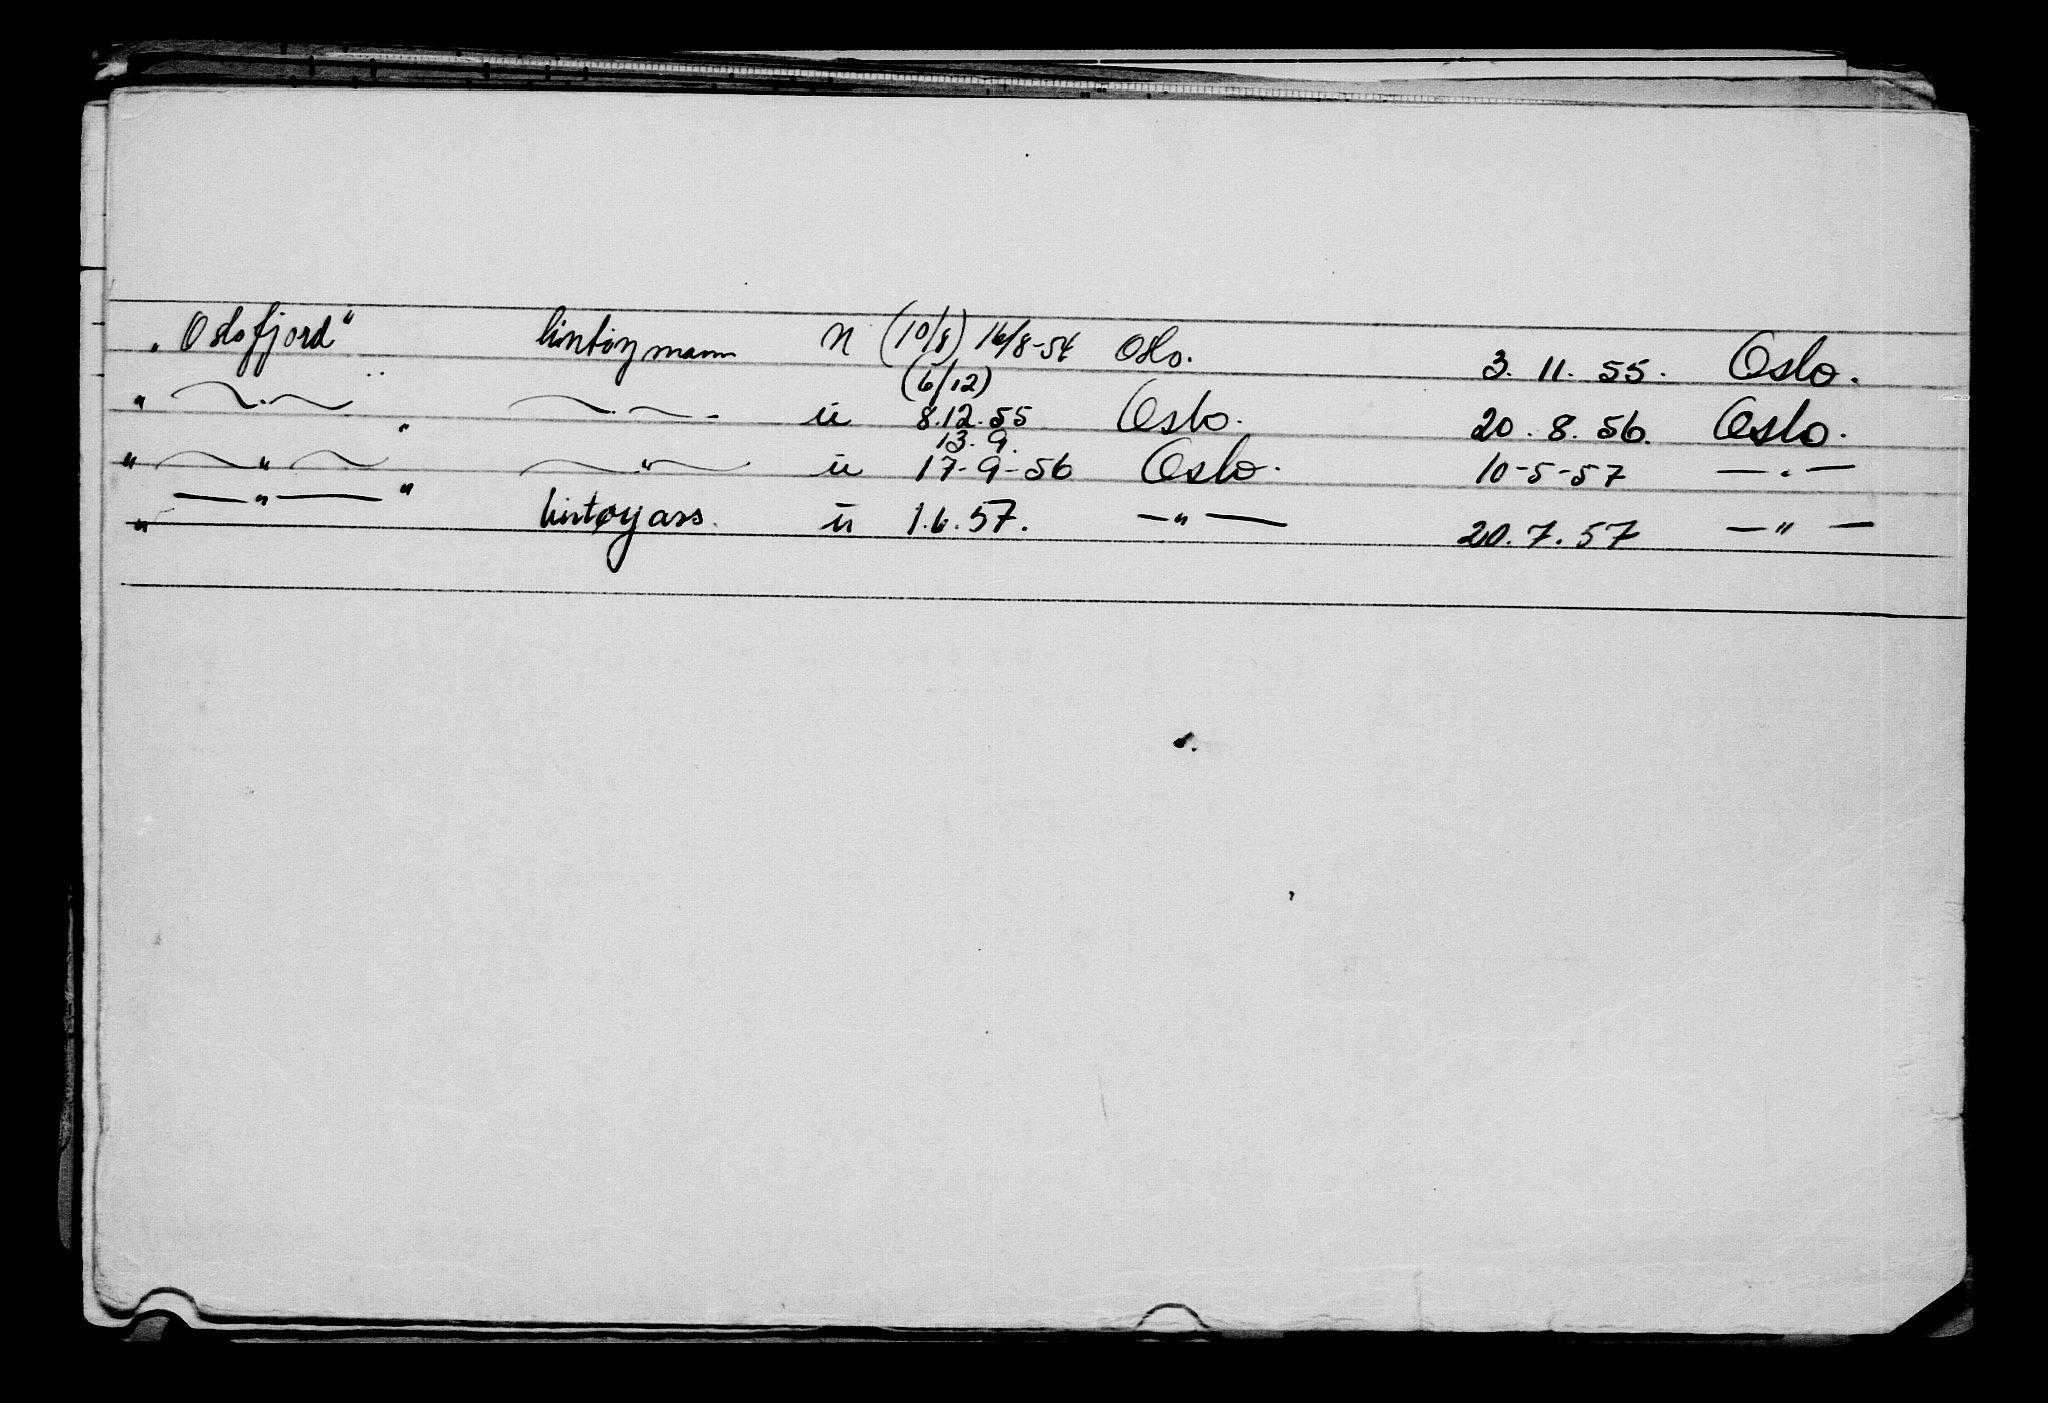 „Oslofjord" lintøymann n (10/8) 16/8-54 Oslo. 3. 11. 55. Oslo.
(6/12)
" — . — " — . — u 8.12.55 Oslo. 20. 8. 56. Oslo.
13. 9.
" — " — " — " — u 17-9-56 Oslo. 10-5-57 — . —
" — " — " lintøyass. u 1.6.57. — " — 20. 7. 57 — " —